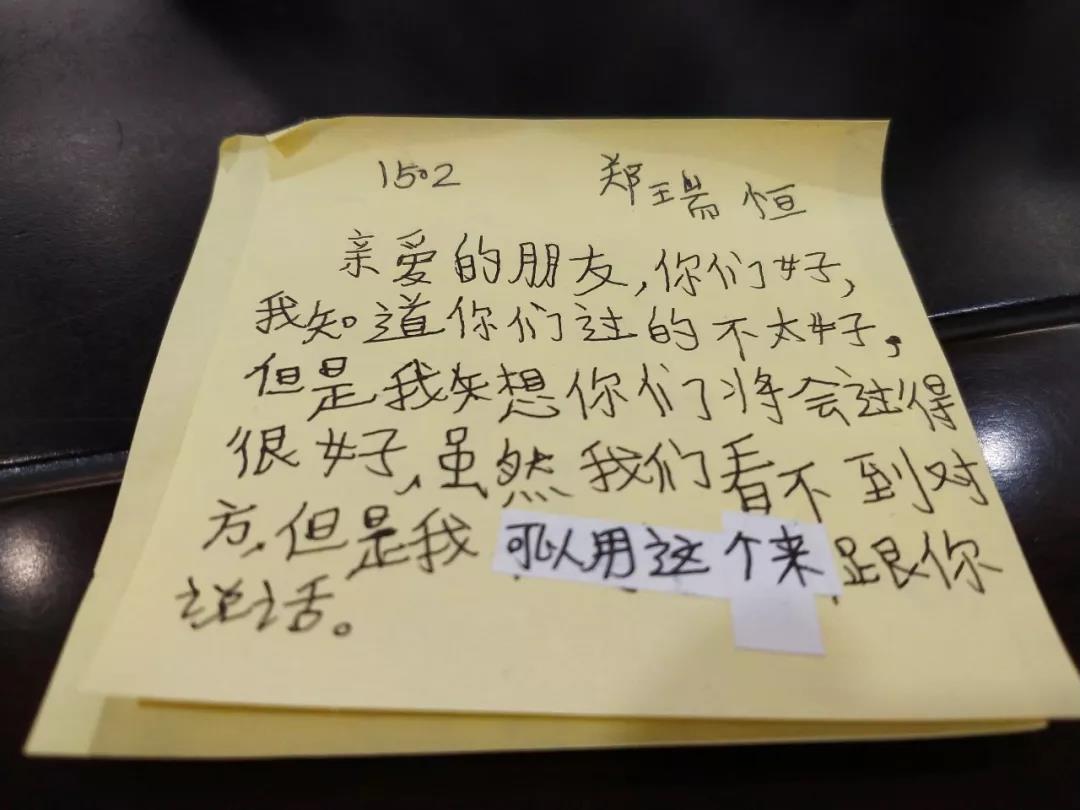 1502 郑瑞恒
亲爱的朋友,你们好,
我知道你们过的不太好,
但是我知想你们将会过得
很好,虽然我们看不到对
方,但是我可以用这个来跟你
说话。